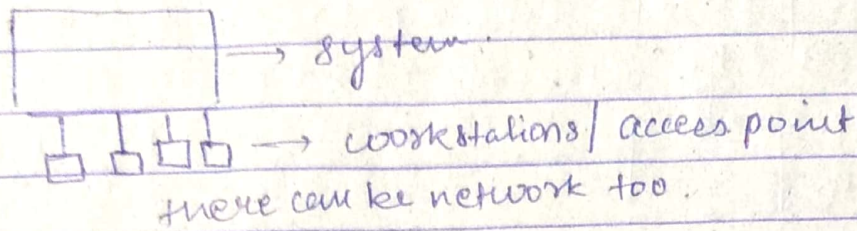 → system.
→ workstations/ access point
there can be network too.